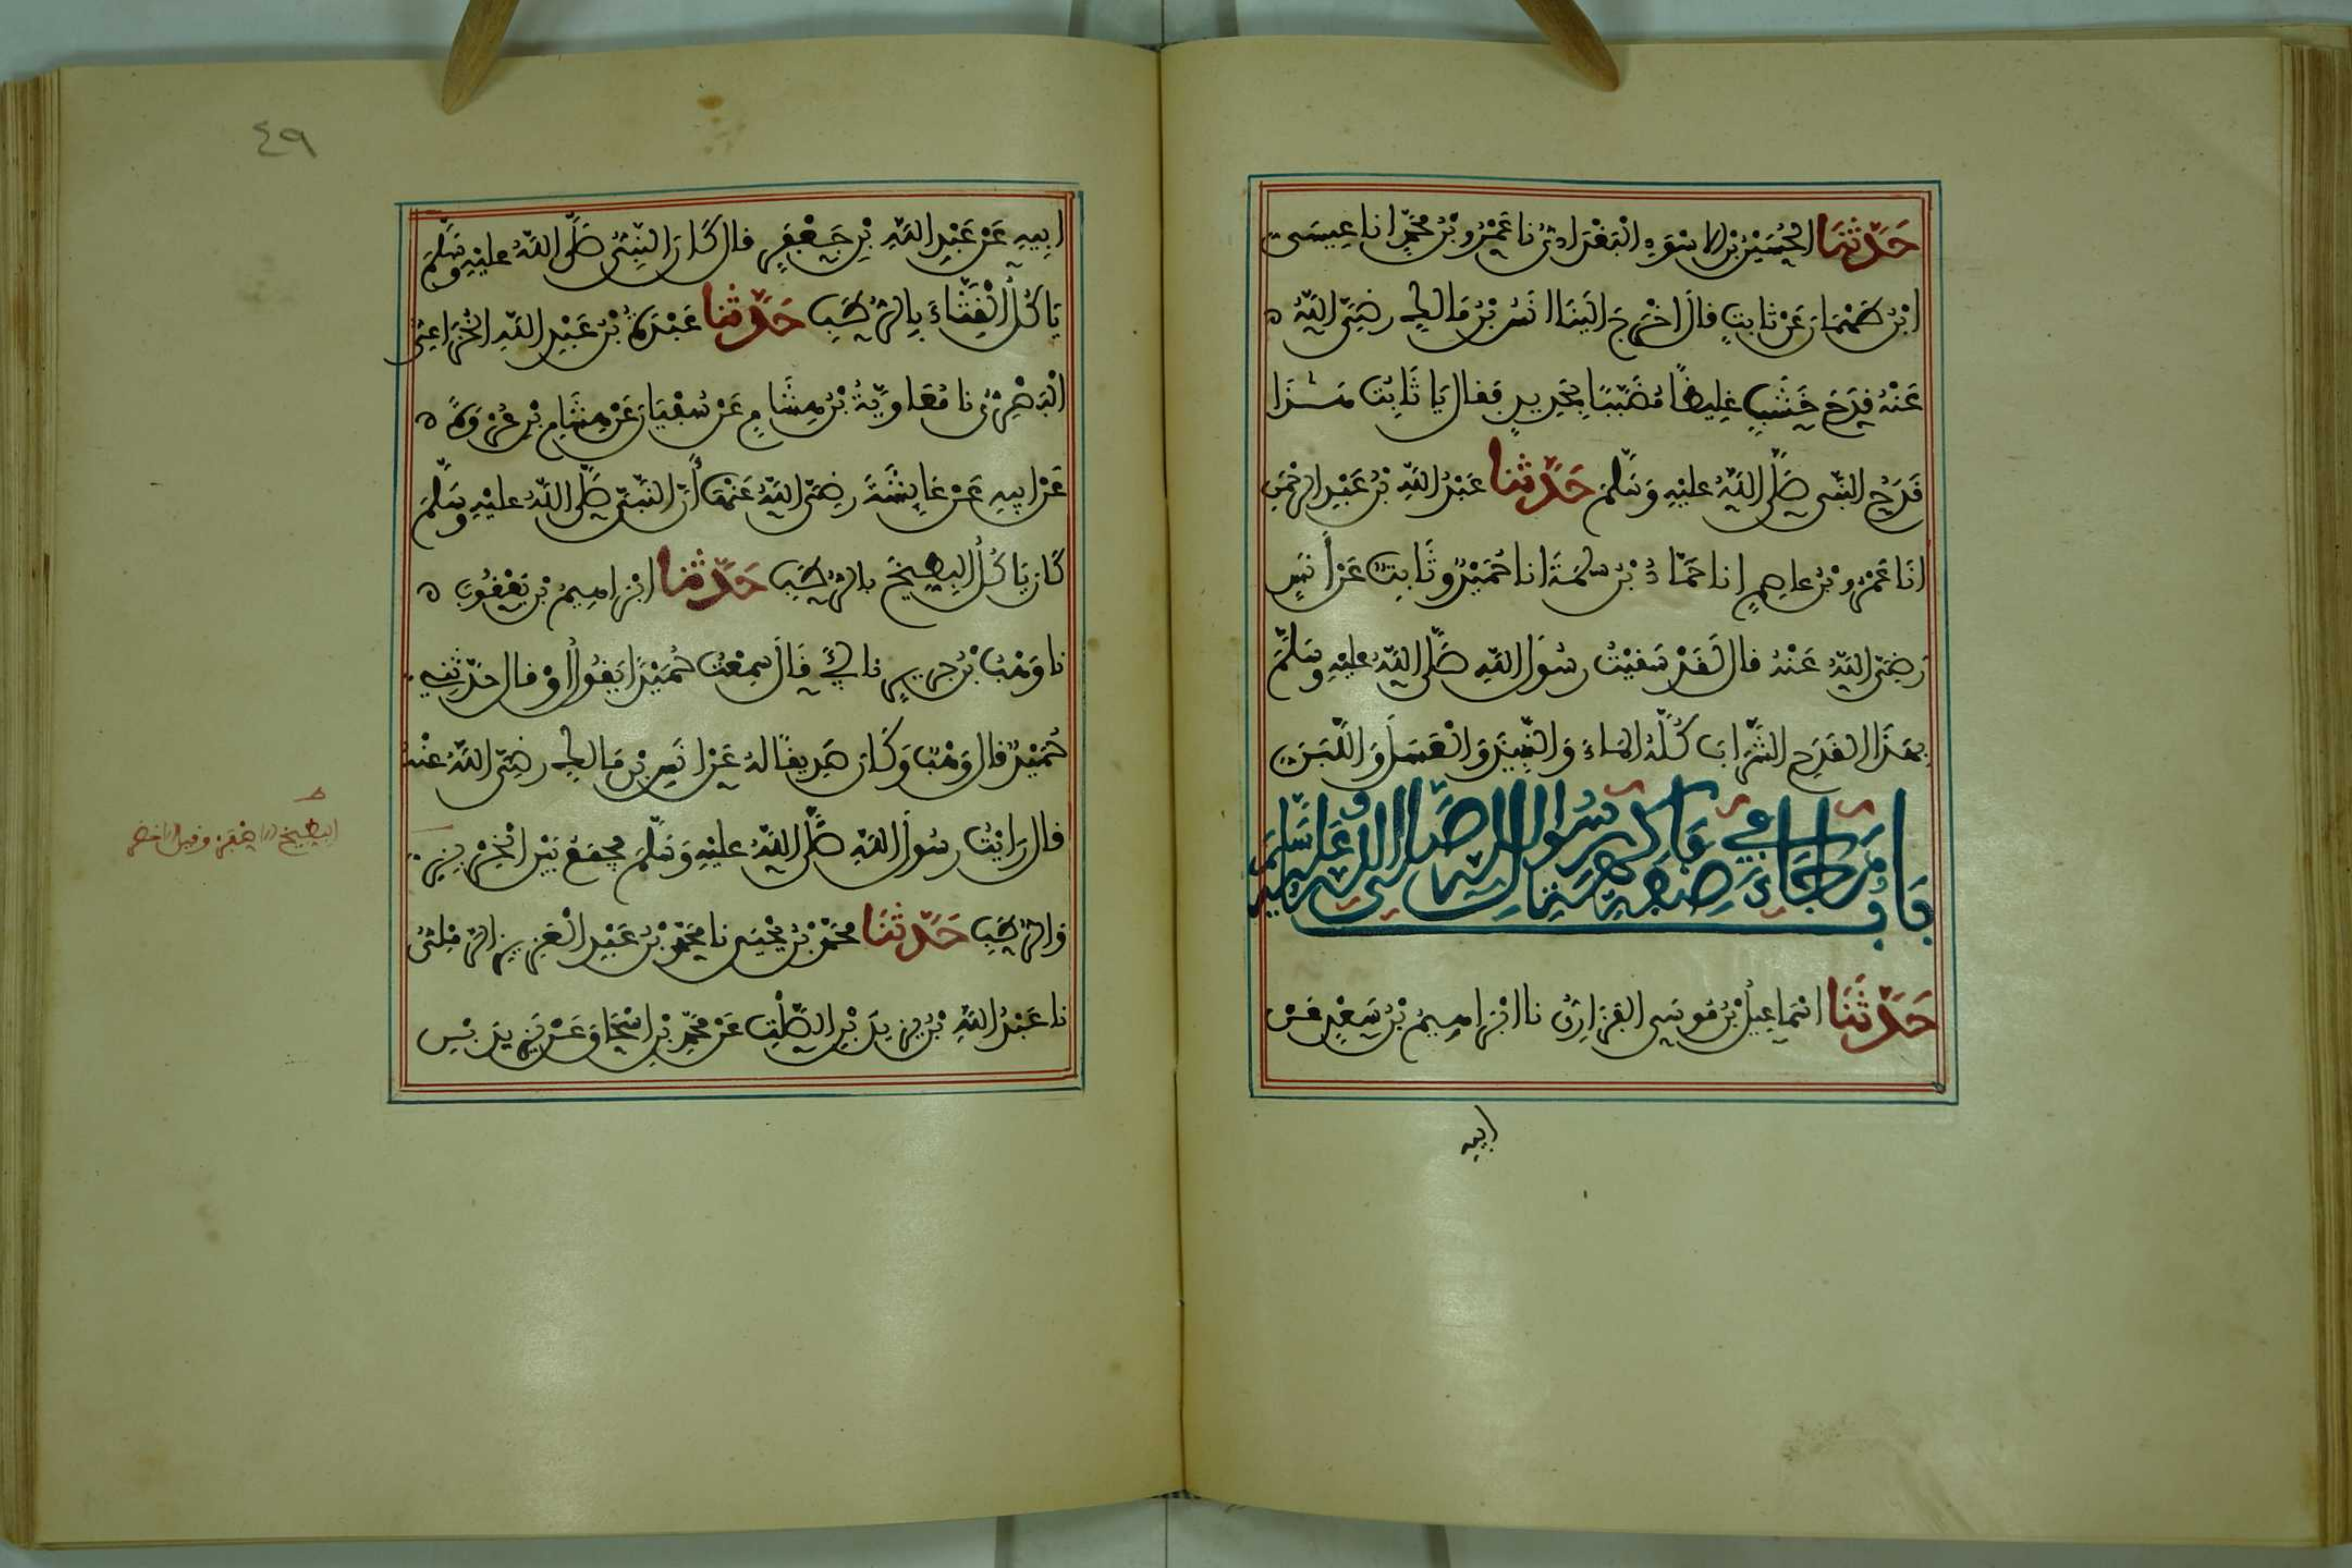 حَدَّثَنَا الحُسَيْنُ بْنُ الاسْوَدِ الْبَغْدَادِيُّ نا عَمْرُو بْنُ مُحَمَّدٍ انا عِيسَى
ابْنُ طَهْمَانَ عَنْ ثَابِتٍ قالَ اخْرَجَ الَيْنَا انَسُ بْنُ مَالِكٍ رَضِيَ اللَّهُ
عَنْهُ قَدَحَ خَشَبٍ غلِيظًا مُضَبَّبًا بِحَدِيدٍ فَقالَ يَا ثَابِتُ هَـٰذَا
قَدَحُ النَّبِي صَلَّى اللَّهُ عليْهِ وَسَلَّمَ حَدَّثنا عَبْدُ اللَّهِ بْنُ عَبْدِ الرحْمَنِ
انَا عَمْرُو بْنُ عاصِمٍ انا حَمَّادُ بْنُ سَلَمَةَ انا حُمَيْدٌ وثَابِتٌ عَنْ أَنَسٍ
رَضِيَ اللَّهُ عَنْهُ قالَ لَقَدْ سَقيْتُ رسُولَ اللَّهِ صَلَّى اللَّهُ عليْهِ وسَلَّمَ
بِهَذَا القَدَحِ الشَّرَابَ كُلَّهُ الماءَ وَالنَّبِيذَ وَالْعَسَلَ وَاللَّبَنَ
بَابُ مَا جَاءَ فِي صِفَةِ فَاكِهَةِ رَسُولِ اللَّهِ صَلَّى اللَّهُ عَلَيْهِ وَسَلَّمَ
حَدَّثَنَا اسْمَاعِيلُ بْنُ مُوسَى الفَزَارِيُّ نا ابْرَاهِيمُ بْنُ سَعْدٍ عَنْ
ابيه
٤٩
ابِيهِ عَنْ عَبْدِ اللَّهِ بْنِ جَعْفَرٍ قالَ كَانَ النَّبِيُّ صَلَّى اللَّهُ عليْهِ وسَلَّمَ
يَاكُلُ الْقِثَّاءَ بِالرُّطَبِ حَدَّثنا عَبْدَةُ بْنُ عَبْدِ اللَّهِ الخُزَاعِيُّ
الْبَصْرِيُّ نا مُعَاوِيَةُ بْنُ هِشَامٍ عَنْ سُفْيَانَ عَنْ هِشَامِ بْنِ عُرْوَةَ
عَنْ ابِيهِ عَنْ عَايِشَةَ رضِيَ اللَّهُ عَنْهَا أَنَّ النَّبِيَّ صَلَّى اللَّهُ عليْهِ وسَلَّمَ
كَانَ يَاكُلُ البِطِّيخَ بالرُّطَبِ حَدَّثَنا ابْرَاهِيمُ بْنُ يَعْقُوبَ
نا وَهْبُ بْنُ جَرِيرٍ نا أبي قَالَ سَمِعْتُ حُمَيْدًا يَقُولُ أَوْ قال حَدَّثَنِي
حُمَيْدٌ قالَ وَهْبٌ وَكَانَ صَدِيقًا لهُ عَنْ انَسِ بْنِ مَالِكٍ رضِيَ اللَّهُ عنْهُ
قالَ رَايْتُ رسُولَ اللَّهِ صَلَّى اللَّهُ عليْهِ وَسَلَّمَ يَجْمَعُ بَيْنَ الْخِرْبِزِ
وَالرُّطَبِ حَدَّثَنَا مُحَمَّدُ بْنُ يَحْيَى نا مُحَمَّدُ بْنُ عَبْدِ الْعَزِيزِ الرَّمْلِيُّ
نا عَبْدُ اللَّهِ بْنُ يَزِيدَ بْنِ الصَّلْتِ عَنْ مُحَمَّدِ بْنِ اسْحَاقَ عَنْ يَزِيدَ بْنِ
البطيخ الاصفر وقيل الاخضر